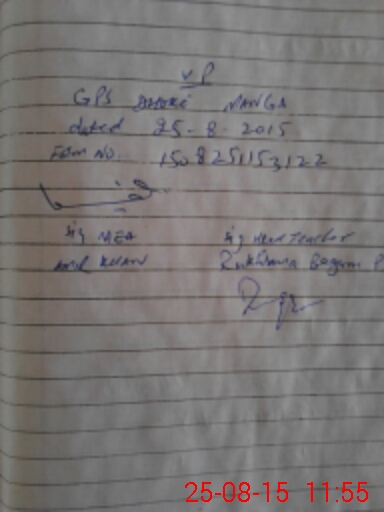 V P
GPS DHERI NANGA
dated 25-8-2015
Form No. 1508251153122
Sig MEA
Sig Head Teacher
Amir KHAN
Rukhsana Begum P
25-08-15 11:55